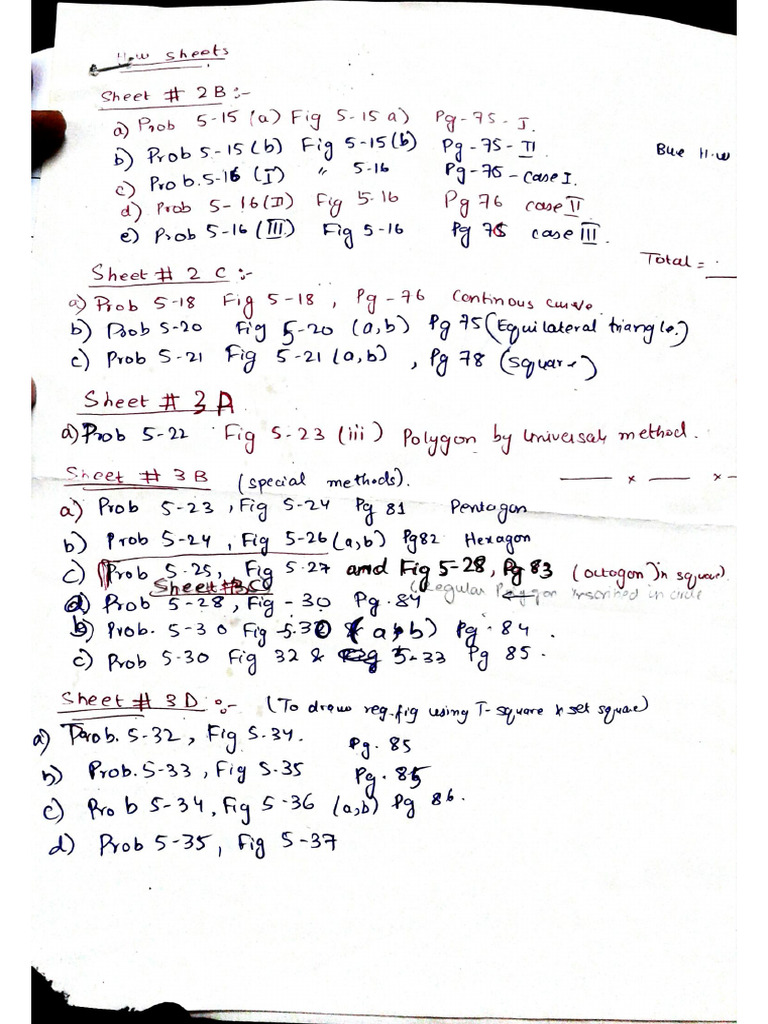 H.w sheets
Sheet # 2B :-
a) Prob 5-15 (a) Fig 5-15 a) Pg-75-I.
b) Prob 5-15 (b) Fig 5-15(b) Pg-75-II
Blue H.w
c) Prob.5-16 (I) " 5-16 Pg-75-case I.
d) Prob 5-16(II) Fig 5.16 Pg 76 case II
e) Prob 5-16 (III) Fig 5-16 Pg 76 case III.
Total =
Sheet # 2 C :-
a) Prob 5-18 Fig 5-18, Pg-76 Continous curve
b) Prob 5-20 Fig 5-20 (a,b) Pg 75 (Equilateral triangle.)
c) Prob 5-21 Fig 5-21 (a,b), Pg 78 (square)
Sheet # 3 A
a) Prob 5-22 Fig 5-23 (iii) Polygon by Universal method.
Sheet # 3 B (special methods).
a) Prob 5-23, Fig 5-24 Pg 81 Pentagon
b) Prob 5-24, Fig 5-26 (a,b) Pg82 Hexagon
c) Prob 5.25, Fig 5.27 and Fig 5-28, Pg 83 (octogon) in square).
Sheet # 3C (Regular Polygon inscribed in circle
a) Prob 5-28, Fig-30 Pg.84
b) Prob. 5-30 Fig 5.32 (a,b) Pg.84.
c) Prob 5-30 Fig 32 & 5-33 Pg 85.
Sheet # 3D :- (To draw reg.fig using T-square & set square)
a) Prob. 5-32, Fig 5.34. Pg. 85
b) Prob. 5-33, Fig 5.35 Pg. 85
c) Prob 5-34, Fig 5-36 (a,b) Pg 86.
d) Prob 5-35, Fig 5-37